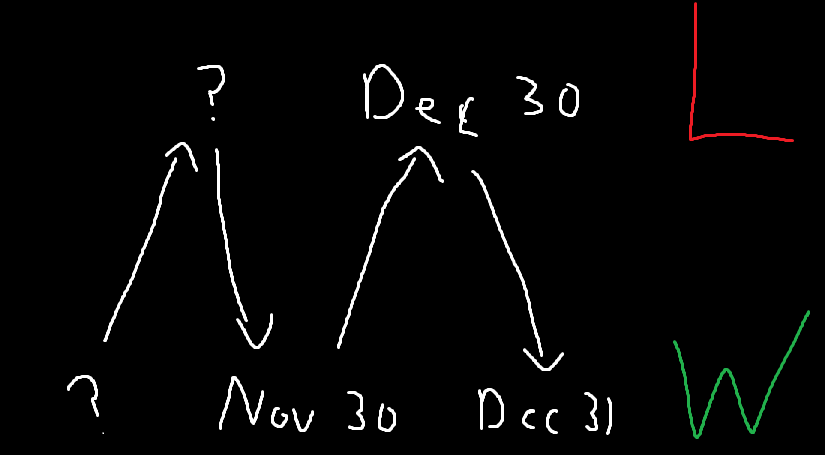 ? Dec 30 L
? Nov 30 Dec 31 W